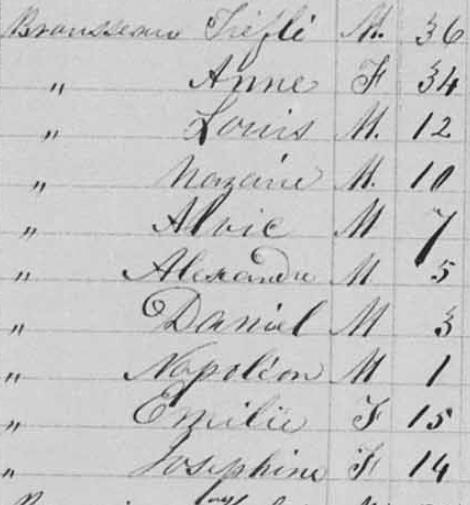 Brousseau Tréflé M. 36
" Anne F 34
" Louis M. 12
" Nazaire M. 10
" Alvic M 7
" Alexandre M 5
" Daniel M 3
" Napoléon M 1
" Emilie F 15
" Josephine F 14